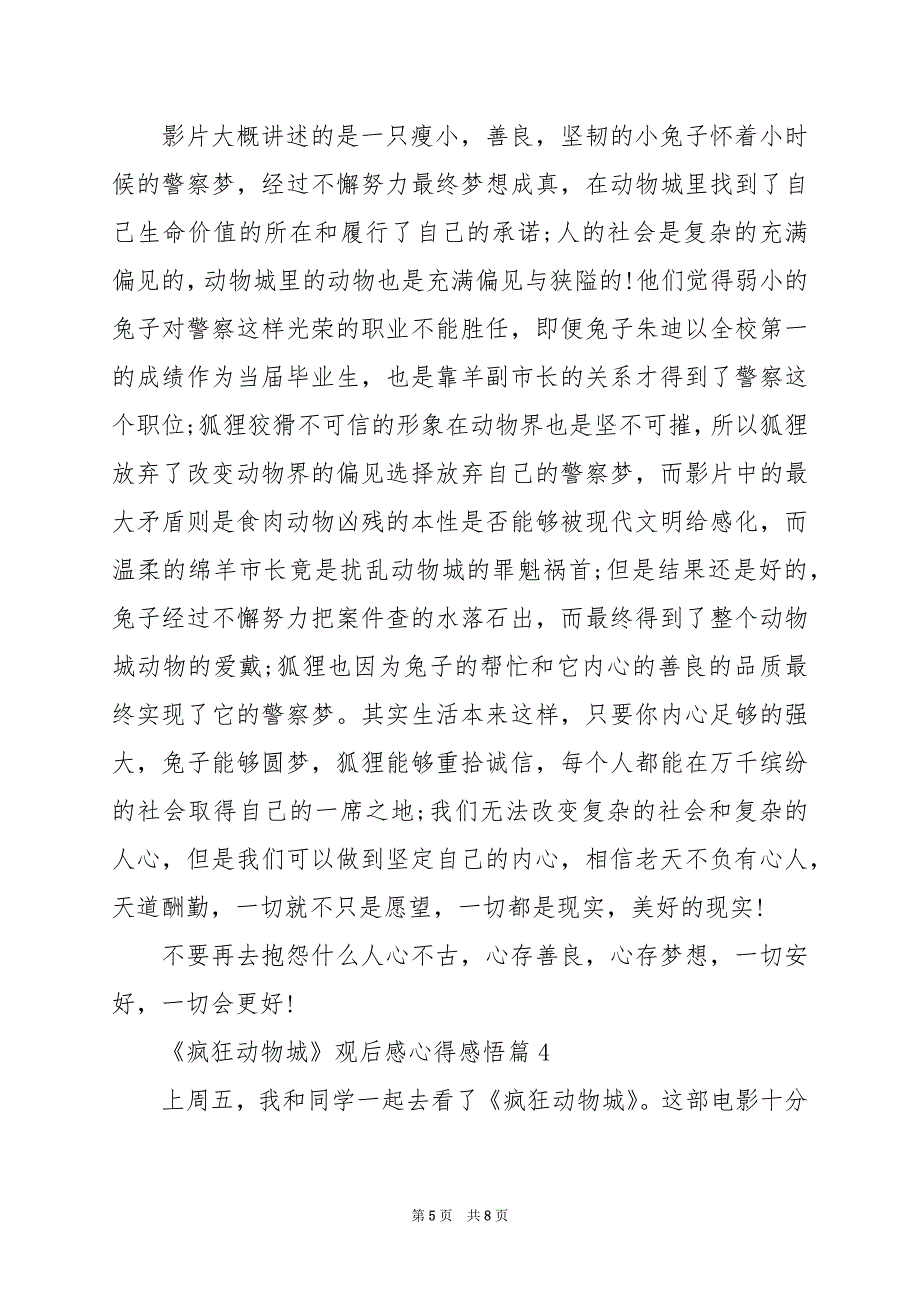 影片大概讲述的是一只瘦小，善良，坚韧的小兔子怀着小时
候的警察梦，经过不懈努力最终梦想成真，在动物城里找到了自
己生命价值的所在和履行了自己的承诺;人的社会是复杂的充满
偏见的,动物城里的动物也是充满偏见与狭隘的!他们觉得弱小的
兔子对警察这样光荣的职业不能胜任，即便兔子朱迪以全校第一
的成绩作为当届毕业生，也是靠羊副市长的关系才得到了警察这
个职位;狐狸狡猾不可信的形象在动物界也是坚不可摧,所以狐狸
放弃了改变动物界的偏见选择放弃自己的警察梦，而影片中的最
大矛盾则是食肉动物凶残的本性是否能够被现代文明给感化，而
温柔的绵羊市长竟是扰乱动物城的罪魁祸首;但是结果还是好的，
兔子经过不懈努力把案件查的水落石出，而最终得到了整个动物
城动物的爱戴;狐狸也因为兔子的帮忙和它内心的善良的品质最
终实现了它的警察梦。其实生活本来这样，只要你内心足够的强
大，兔子能够圆梦，狐狸能够重拾诚信，每个人都能在万千缤纷
的社会取得自己的一席之地;我们无法改变复杂的社会和复杂的
人心，但是我们可以做到坚定自己的内心，相信老天不负有心人，
天道酬勤，一切就不只是愿望，一切都是现实，美好的现实!
不要再去抱怨什么人心不古，心存善良，心存梦想，一切安
好，一切会更好!
《疯狂动物城》观后感心得感悟篇 4
上周五，我和同学一起去看了《疯狂动物城》。这部电影十分
第 5 页 共 8 页